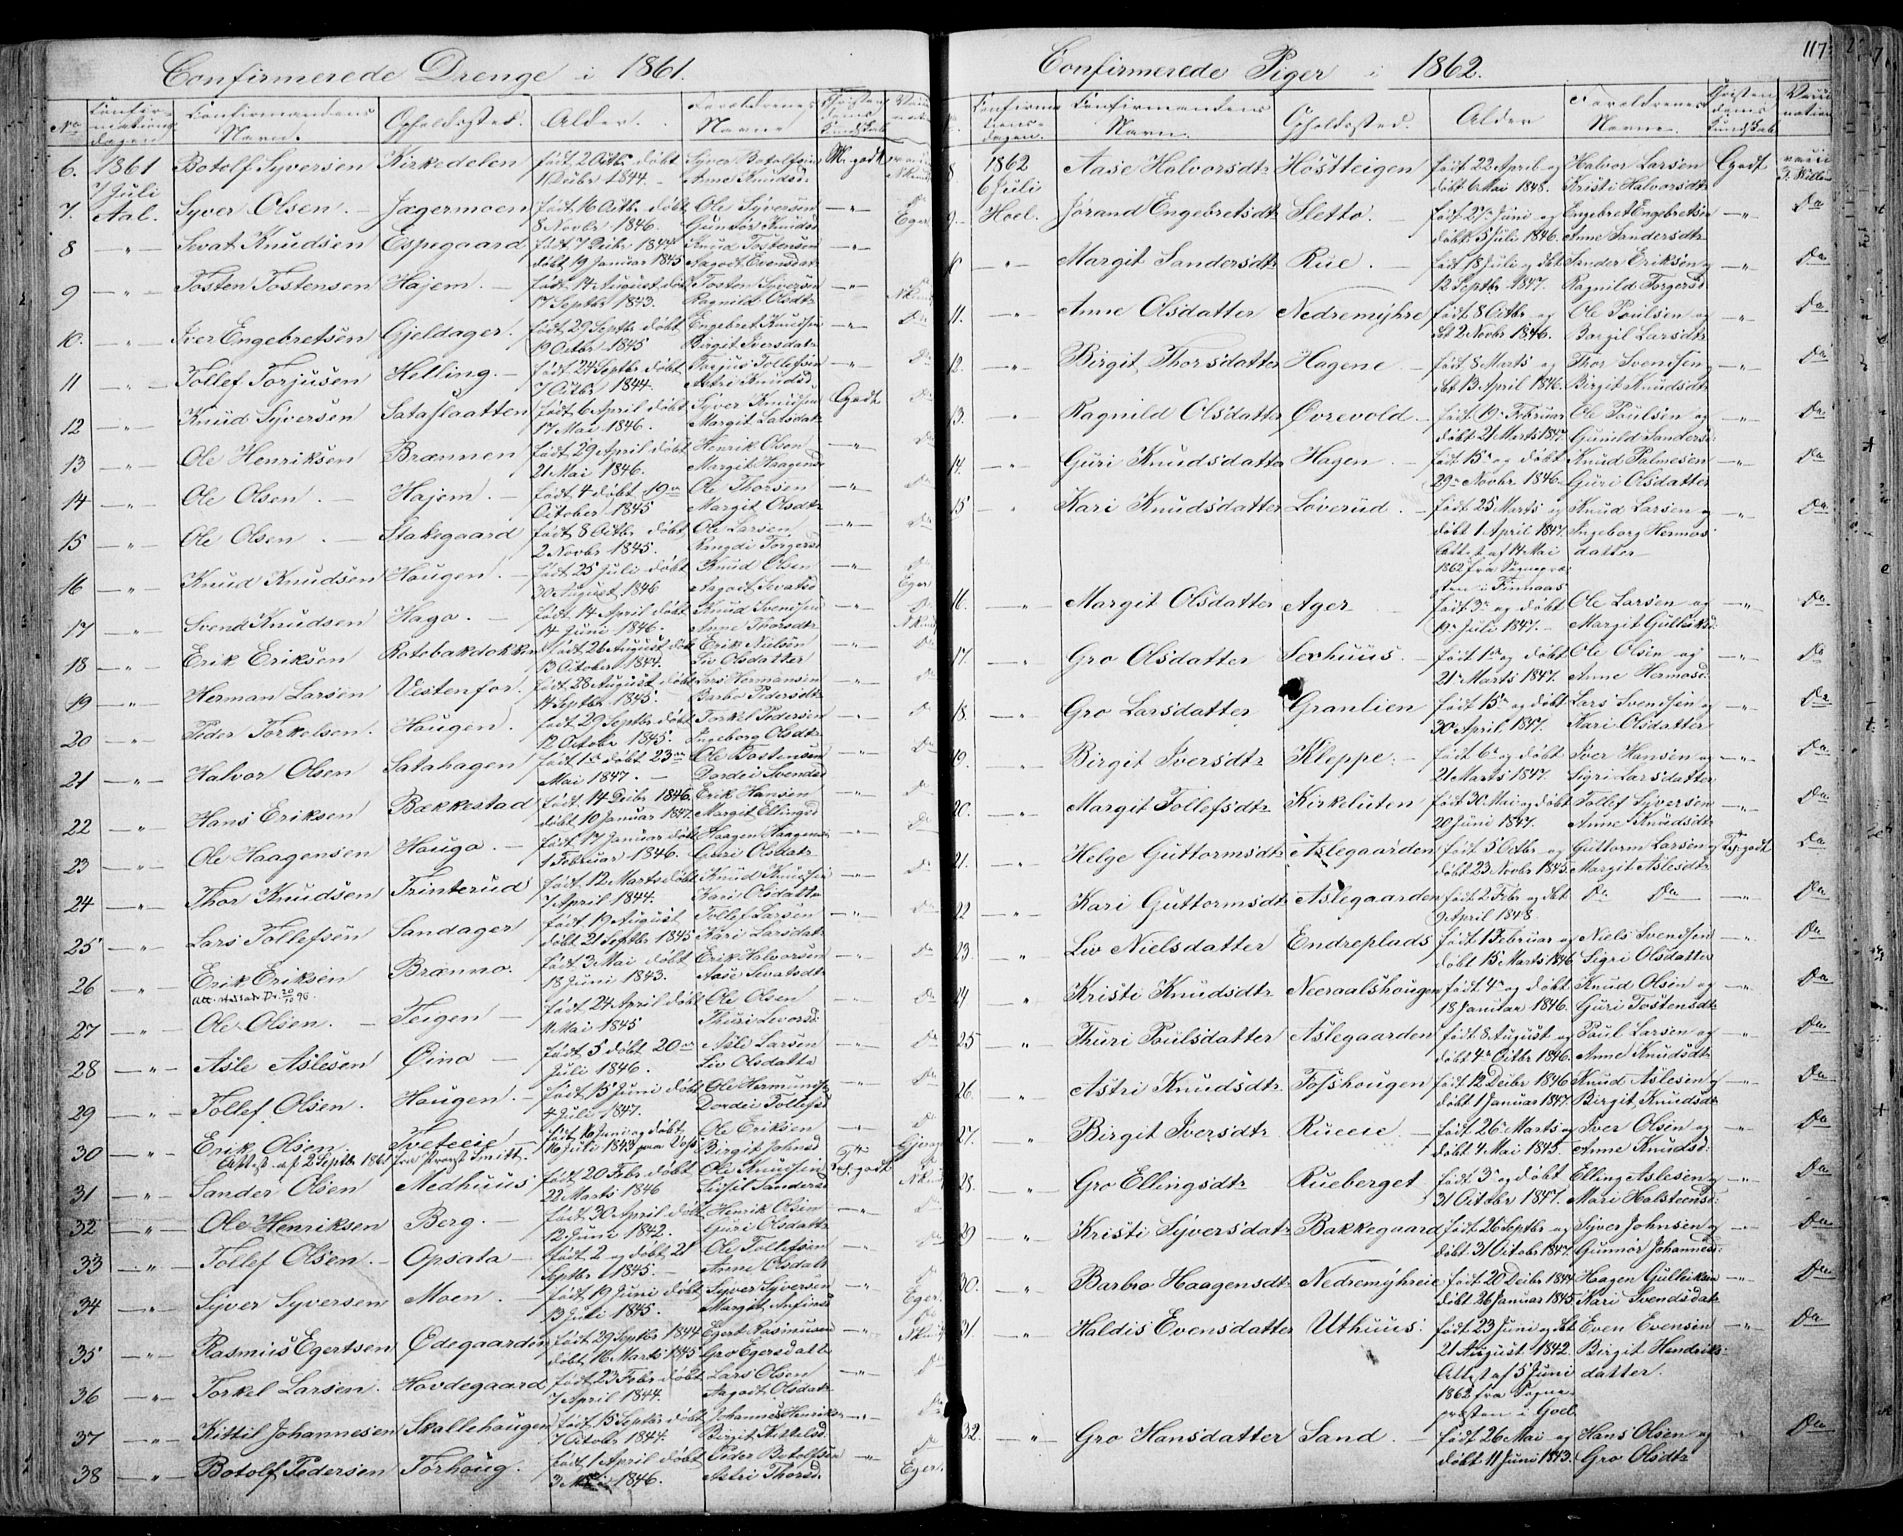 Confirmerede Drenge i 1861.
No Confirmations dagen Confirmandens Navn. Opholdssted. Alder. Forældrenes Navne Christendoms Kundskab
6. 1861 7 Juli Aal. Botolf Syversen Kirkedelen født 2 Octbr døbt 1 Decbr 1844. Syver Botolfsen Anne Knudsd. M. godt
7. Syver Olsen. Jægermoen født 16 Octbr døbt 8 Novbr 1846. Ole Syversen Gunnor Knudsd. Eger
8 " Sevat Knudsen Espegaard født 7 Decbr 1844 døbt 19 Januar 1845 Knud Tostensen Aagodt Evensdatr
9 " Tosten Tostensen Hajem. født 14 August døbt 17 Septbr 1843. Tosten Syversen Ragnild Olsdtr
10. " Iver Engebretsen Gjeldager. født 29 Septbr døbt 19 Octbr 1845 Engebret Knudsen Birgit Iversdatr
11 " Tollef Torjusen Helling. født 24 Septbr døbt 7 Octbr 1844. Torjus Tollefsen Astri Knudsd
12 " Knud Syversen Sataslaatten født 6 April døbt 17 Mai 1846. Syver Knudsen Margit Larsdatr Godt
13 " Ole Henriksen Brænnen født 29 April døbt 21 Mai 1846. Henrik Olsen Margit Haagensd
14 " Ole Olsen. Hajem. født 4 døbt 19 October 1845 Ole Thorsen Margit Olsdtr
15 " Ole Olsen Stakegaard født 8 Octbr døbt 2 Novbr 1845. Ole Larsen Rangdi Torgersd
16 " Knud Knudsen Haugen. født 25 Juli døbt 30 August 1846 Knud Olsen Aagodt Sevatsd Eger
17 " Svend Knudsen Haga. født 14 April døbt 14 Juni 1846. Knud Svendsen Anne Thorsdtr
18 " Erik Eriksen Rotebakdokken født 26 August døbt 13 October 1844. Erik Nielsen Liv Olsdatter
19 " Herman Larsen Vestenfor. født 28 August døbt 14 Septbr 1845. Lars Hermansen Barbo Pedersdtr
20 " Peder Torkelsen. Haugen. født 29 Septbr døbt 12 Octobr 1845. Torkel Pedersen Ingeborg Olsdtr
21 " Halvor Olsen Satahagen født 1 døbt 23 Mai 1847. Ole Tostensen Dordei Svendsd
22 " Hans Eriksen Bækkestad født 14 Decbr 1846. døbt 10 Januar 1847. Erik Hansen Margit Ellingsd
23 " Ole Haagensen Hauga. født 17 Januar døbt 1 Februar 1846. Haagen Haagens Guri Olsdatr
24 " Thor Knudsen Trinterud født 12 Marts døbt 7 April 1844. Knud Knudsen Kari Olsdatter
25 " Lars Tollefsen Sandager født 19 August døbt 21 Septbr 1845 Tollef Larsen Kari Larsdatr
26 " Erik Eriksen Brænno. født 3 Mai døbt 18 Juni 1843. Erik Halvorsen Aase Sevatsdtr
27 " Ole Olsen. Teigen født 24 April døbt 11 Mai 1845 Ole Olsen Thuri Levorsd
28 " Asle Aslesen Øino født 5 døbt 20 Juli 1846. Asle Larsen Liv Olsdatter
29 " Tollef Olsen. Haugen. født 15 Juni døbt 4 Juli 1847. Ole Hermunds Dordei Tollefsd
30 " Erik Olsen Tveteeie født 16 Juni og døbt 16 Juli 1843 Ole Eriksen Birgit Johnsd
Attest af 2 Septbr 1861 fra Provst Smitt.
31 " Sander Olsen Medhuus født 20 Febr døbt 22 Marts 1846 Ole Knudsen Sissil Sandersd Tsl. godt
32 " Ole Henriksen Berg. født 30 April døbt 12 Juni 1842. Henrik Olsen Guri Olsdatter
33 " Tollef Olsen. Opsata født 2 og døbt 21 Septbr 1845. Ole Tollefsen Anne Olsdatr
34 " Syver Syversen Moen født 19 Juni døbt 13 Juli 1845. Syver Syversen Margit Anfinsd Eger.
35 " Rasmus Egertsen Ødegaarden født 29 Septbr 1844 døbt 16 Marts 1845 Egert Rasmussen Gro Egersdatter
36 " Torkel Larsen. Hovdegaard født 23 Febr døbt 7 April 1844. Lars Olsen Aagodt Olsdatr
37 " Kittil Johannesen Skallehaugen født 15 Septbr døbt 7 Octobr 1844. Johannes Henriks Birgit Kittelsd
38 " Botolf Pedersen Torhoug. født 1 April døbt 3 Mai 1846. Peder Botolfsen Astri Thorsd. Eger.
Confirmerede Piger i 1862.
117
Confirmationsdagen. Confirmandens Navn. Opholdsted. Alder Forældrenes Navne. Christendoms Kundskab
8 1862 6 Juli Hoel. Aase Halvorsdtr Høstteigen født 22 April og døbt 6 Mai 1848. Halvor Larsen Kristi Halvorsdtr Godt
9 Jørand Engebretsdtr Sletto. født 27 Juni og døbt 5 Juli 1846. Engebret Engebretsen Anne Sandersdtr Do
" Margit Sandersdtr Rue. født 18 Juli og døbt 12 Septbr 1847. Sander Eriksen og Ragnild Torgersd Do
11. " Anne Olsdatter Nedremyhre født 8 Octbr og døbt 2 Novbr 1846. Ole Paulsen og Borgil Larsdtr Do
12. " Birgit Thorsdatter Hagene født 8 Marts og døbt 13 April 1846. Thor Svendsen og Birgit Knudsdtr Do
13. " Ragnild Olsdatter Øvrevold født 19 Februar døbt 21 Marts 1847. Ole Paulsen og Gunild Sandersd: Do
14. " Guri Knudsdatter Hagen født 15 og døbt 29 Novbr 1846. Knud Palmesen Guri Olsdatter Do
15 " Kari Knudsdatter Løverud. født 25 Marts og døbt 1 April 1847. Attest af 14 Mai 1862 fra Sognepræsten i Finnaas Knud Larsen og Ingeborg Hermosdatter Do
16. " Margit Olsdatter Ager født 3 og døbt 19 Juli 1847. Ole Larsen og Margit Gulliksd: Do
17. " Gro Olsdatter Sexhuus. født 1 og døbt 21 Marts 1847. Ole Olsen og Anne Hermosd: Do
18. " Gro Larsdatter Granlien født 15 og døbt 30 April 1847. Lars Svendsen og Kari Olsdatter Do
19. " Birgit Iversdtr Kleppe. født 6 og døbt 21 Marts 1847. Iver Hansen og Sigri Larsdatter Do
20. " Margit Tollefsdtr Kirkeluten født 30 Mai og døbt 20 Juni 1847. Tollef Syversen Anne Knudsdtr Do
21. " Helge Guttormsdtr Aslegaarden født 5 Octbr og døbt 23 Novbr 1845. Guttorm Larsen og Margit Aslesdtr Tsl. godt Do
22 " Kari Guttormsdtr Aslegaarden født 2 Febr og døbt 9 April 1848 Do Do Do
23. " Liv Nielsdatter Endreplads født 1 Februar og døbt 15 Marts 1846 Niels Svendsen Sigri Olsdatter Do
24 " Kristi Knudsdtr Neeraalshougen født 4 og døbt 18 Januar 1846. Knud Olsen og Guri Tostensdtr Do
25 " Thuri Poulsdatter Aslegaarden født 8 August og døbt 4 Octbr 1846. Poul Larsen og Anne Knudsdtr Do
26. " Astri Knudsdtr. Fosshougen født 12 Decbr 1846 døbt 1 Januar 1847. Knud Aslesen og Birgit Knudsdtr Do
27. " Birgit Iversdtr. Rueeie født 26 Marts og døbt 4 Mai 1845. Iver Olsen og Anne Knudsd: Do
28. " Gro Ellingsdtr Rueberget født 3 og døbt 31 Octbr 1847. Elling Aslesen og Mari Halsteensd: Do
29 " Kristi Syversdatr Bakkegaard født 26 Septbr og døbt 31 Octobr 1847. Syver Johnsen og Gunnor Johannesd: Do
30. " Barbro Haagensdtr Nedremyhreie født 20 Decbr 1844 døbt 26 Januar 1845 Haagen Gulleiksen Kari Svendsdatr Do
31 " Haldis Evensdatter Uthuus: født 23 Juni og døbt 21 August 1842. Attest af 5 Juni 1862 fra Sognepræsten i Goel Even Evensen Birgit Hendriksdatter. Do
32. " Gro Hansdatter Sand. født 26 Mai og døbt 11 Juni 1843. Hans Olsen og Gro Olsdtr Do